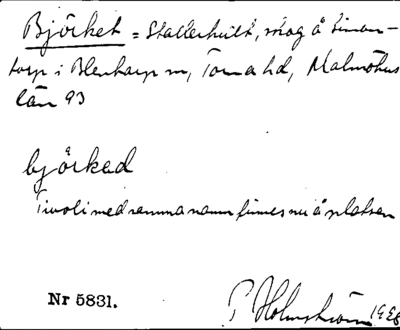 Björket = Stallerhult, skog å Simon-
torp i Blentarp sn, Torna hd, Malmöhus
län 93
björked
Tivoli med samma namn finnes nu å platsen
Nr 5831.
P Holmström